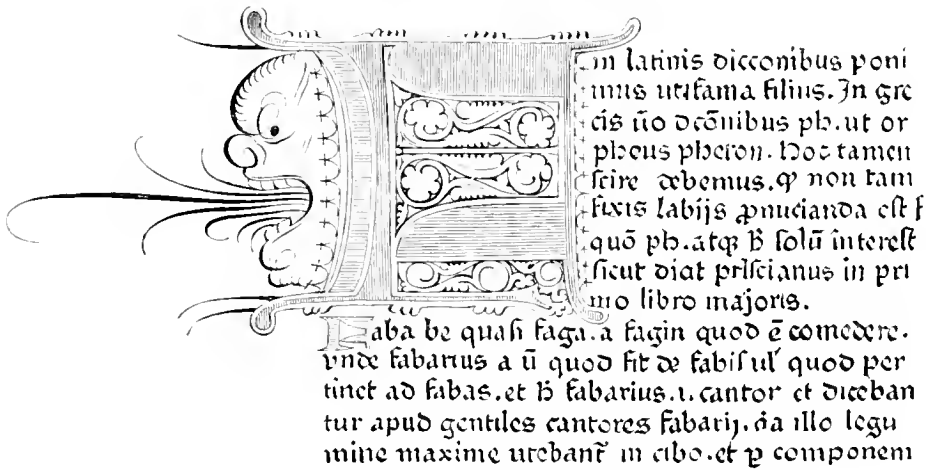 F in latinis dicconibus poni
mus ut fama filius. In gre
cis ũo dcõnibus ph. ut or
pheus pheron. Hoc tamen
scire debemus. ꝙ non tam
fixis labijs ꝓnũcianda est f
quõ ph. atqꝫ ħ solũ interest
sicut dicit priscianus in pri
mo libro majoris.
Faba be quasi faga. a fagin quod ẽ comedere.
vnde fabarius a ũ quod fit de fabis ul' quod per
tinet ad fabas. et ħ fabarius .i. cantor et diceban
tur apud gentiles cantores fabarij. illo legu
mine maxime utebant᷑ in cibo. et ꝑ componem